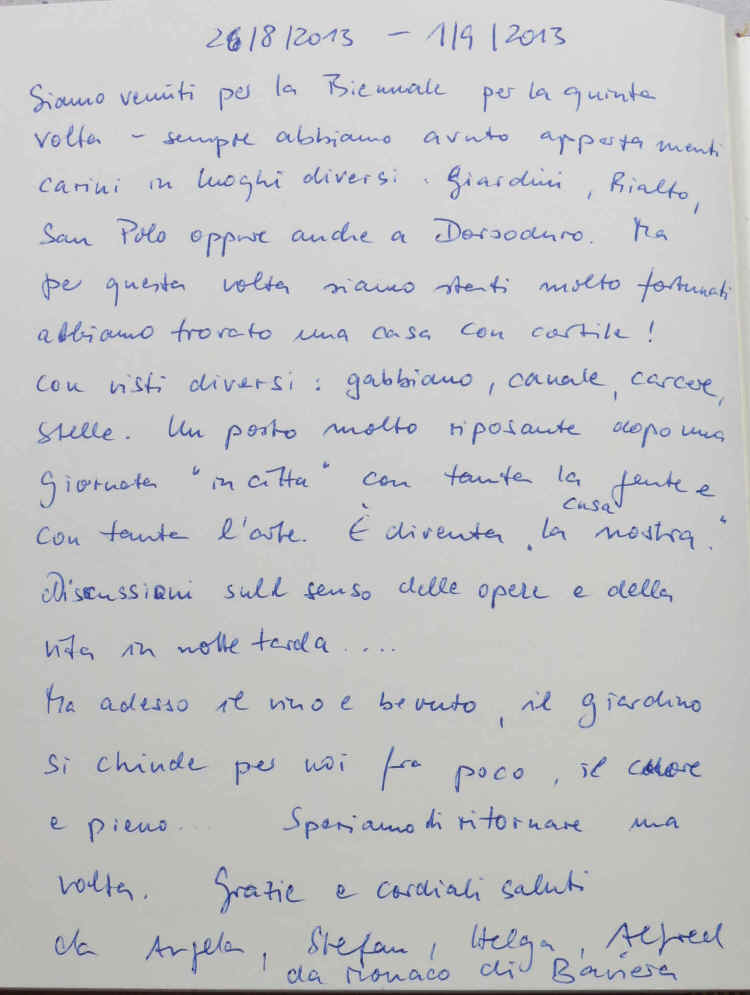 26/8/2013 - 1/9/2013
Siamo venuti per la Biennale per la quinta
volta - sempre abbiamo avuto appartamenti
carini in luoghi diversi. Giardini, Rialto,
San Polo oppure anche a Dorsoduro. Ma
per questa volta siamo stati molto fortunati
abbiamo trovato una casa con cortile!
Con visti diversi: gabbiano, canale, carcere,
Stelle. Un posto molto riposante dopo una
Giornata "in citta" con tanta la gente e
con tanta l'arte. È diventa "la casa nostra."
Discussioni sull senso delle opere e della
vita in notte tarda....
Ma adesso il vino e bevuto, il giardino
si chinde per noi fra poco, il cuore
e pieno... Speriamo di ritornare una
volta. Grazie e cordiali saluti
da Angela, Stefan, Helga, Alfred
da Monaco di Baviera